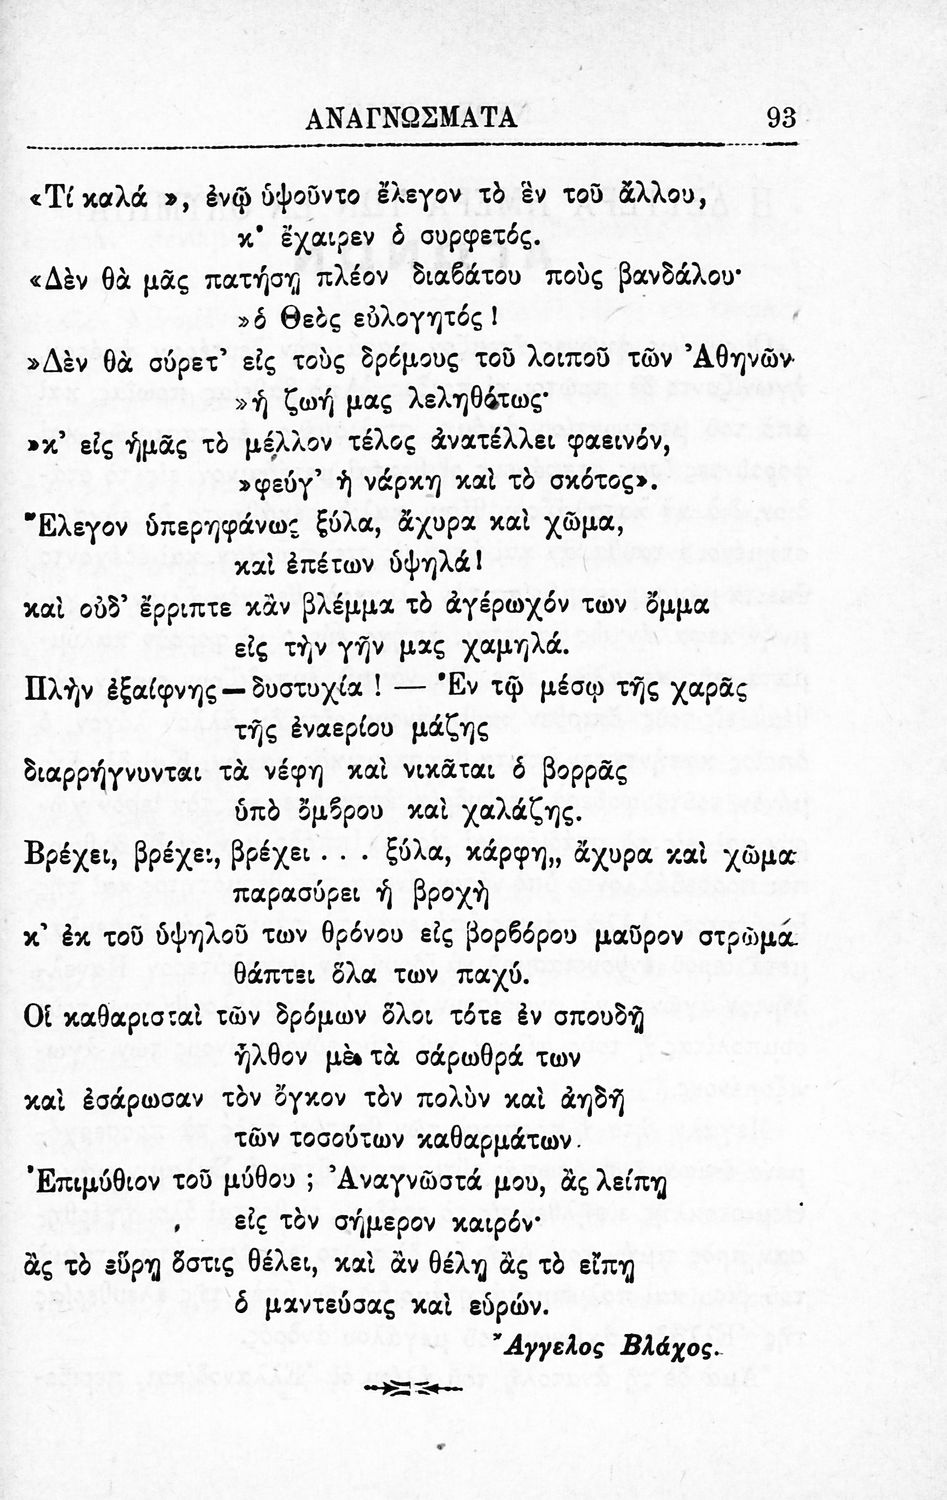 ΑΝΑΓΝΩΣΜΑΤΑ 93
«Τί καλά », ἐνῷ ὑψοῦντο ἔλεγον τὸ ἓν τοῦ ἄλλου,
κ' ἔχαιρεν ὁ συρφετός.
«Δὲν θὰ μᾶς πατήσῃ πλέον διαβάτου ποὺς βανδάλου·
»ὁ Θεὸς εὐλογητός !
»Δὲν θὰ σύρετ' εἰς τοὺς δρόμους τοῦ λοιποῦ τῶν Ἀθηνῶν
»ἡ ζωή μας λεληθότως·
»κ' εἰς ἡμᾶς τὸ μέλλον τέλος ἀνατέλλει φαεινόν,
»φεύγ' ἡ νάρκη καὶ τὸ σκότος».
Ἔλεγον ὑπερηφάνως ξύλα, ἄχυρα καὶ χῶμα,
καὶ ἐπέτων ὑψηλά !
καὶ οὐδ' ἔρριπτε κἂν βλέμμα τὸ ἀγέρωχόν των ὄμμα
εἰς τὴν γῆν μας χαμηλά.
Πλὴν ἐξαίφνης — δυστυχία ! — Ἐν τῷ μέσῳ τῆς χαρᾶς
τῆς ἐναερίου μάζης
διαρρήγνυνται τὰ νέφη καὶ νικᾶται ὁ βορρᾶς
ὑπὸ ὄμβρου καὶ χαλάζης.
Βρέχει, βρέχει, βρέχει . . . ξύλα, κάρφη,, ἄχυρα καὶ χῶμα
παρασύρει ἡ βροχὴ
κ' ἐκ τοῦ ὑψηλοῦ των θρόνου εἰς βορβόρου μαῦρον στρῶμα
θάπτει ὅλα των παχύ.
Οἱ καθαρισταὶ τῶν δρόμων ὅλοι τότε ἐν σπουδῇ
ἦλθον μὲ τὰ σάρωθρά των
καὶ ἐσάρωσαν τὸν ὄγκον τὸν πολὺν καὶ ἀηδῆ
τῶν τοσούτων καθαρμάτων.
Ἐπιμύθιον τοῦ μύθου ; Ἀναγνῶστά μου, ἂς λείπῃ
εἰς τὸν σήμερον καιρόν·
ἂς τὸ εὕρῃ ὅστις θέλει, καὶ ἂν θέλῃ ἂς τὸ εἴπῃ
ὁ μαντεύσας καὶ εὑρών.
Ἄγγελος Βλάχος.